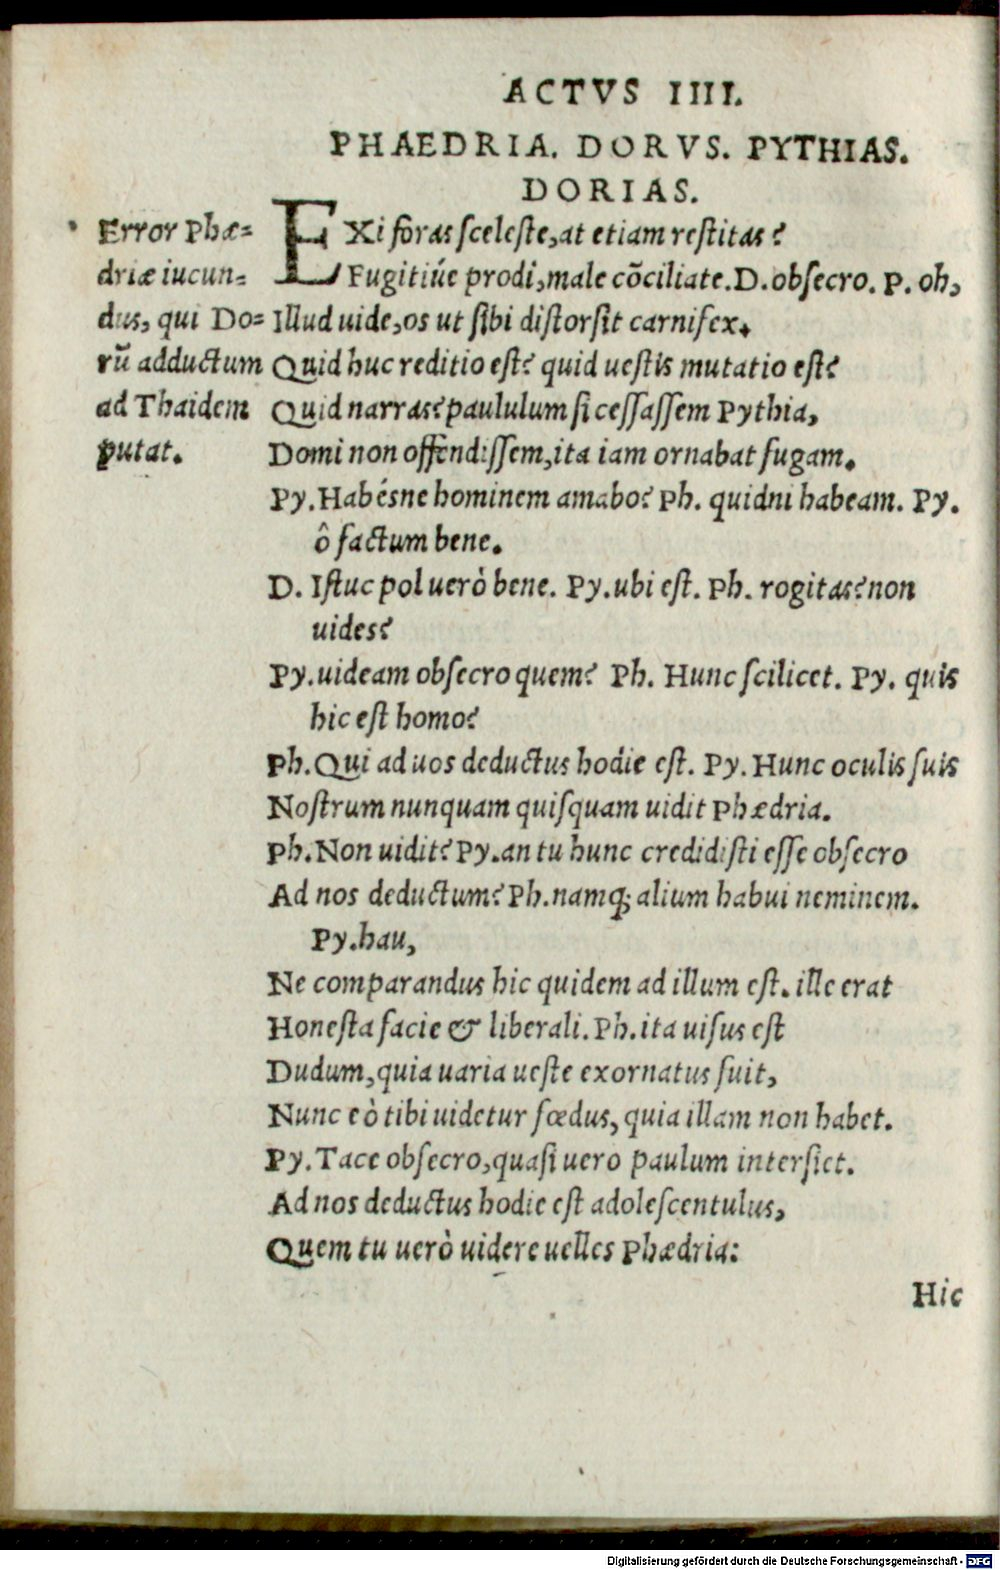 ACTVS IIII.
PHAEDRIA. DORVS. PYTHIAS.
DORIAS.
Error Phæ-
driæ iucun-
dus, qui Do-
rū adductum
ad Thaidem
putat.
EXi foràs sceleste, at etiam restitas?
Fugitiúe prodi, male cōciliate. D. obsecro. P. oh,
Illud uide, os ut sibi distorsit carnifex.
Quid huc reditio est? quid uestis mutatio est?
Quid narras? paululum si cessassem Pythia,
Domi non offendissem, ita iam ornabat fugam.
Py. Habésne hominem amabo? Ph. quidni habeam. Py.
ô factum bene.
D. Istuc pol uerò bene. Py. ubi est. Ph. rogitas? non
uides?
Py. uideam obsecro quem? Ph. Hunc scilicet. Py. quis
hic est homo?
Ph. Qui ad uos deductus hodie est. Py. Hunc oculis suis
Nostrum nunquam quisquam uidit Phædria.
Ph. Non uidit? Py. an tu hunc credidisti esse obsecro
Ad nos deductum? Ph. namq; alium habui neminem.
Py. hau,
Ne comparandus hic quidem ad illum est. ille erat
Honesta facie & liberali. Ph. ita uisus est
Dudum, quia uaria ueste exornatus fuit,
Nunc eò tibi uidetur fœdus, quia illam non habet.
Py. Tace obsecro, quasi uero paulum intersiet.
Ad nos deductus hodie est adolescentulus,
Quem tu uerò uidere uelles Phædria:
Hic
Digitalisierung gefördert durch die Deutsche Forschungsgemeinschaft - DFG